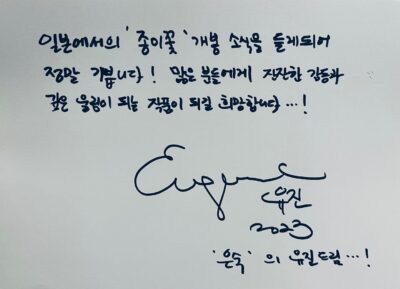 일본에서의 '종이꽃' 개봉 소식을 듣게되어
정말 기쁩니다! 많은 분들에게 잔잔한 감동과
깊은 울림이 되는 작품이 되길 희망합니다...!
Eugene
유진
2023
'은숙'의 유진드림...!